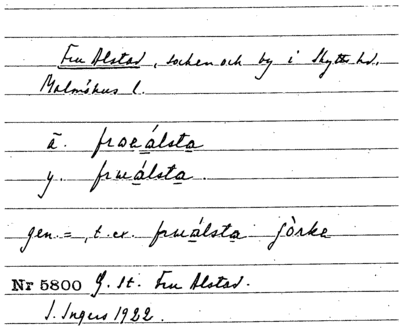 Fru Alstad, socken och by i Skytts hd.,
Malmöhus l.
ä. frueálsta
y. fruálsta.
gen. = , t. ex. fruálsta jòrke
Nr 5800 G. St. Fru Alstad.
I. Ingers 1922.